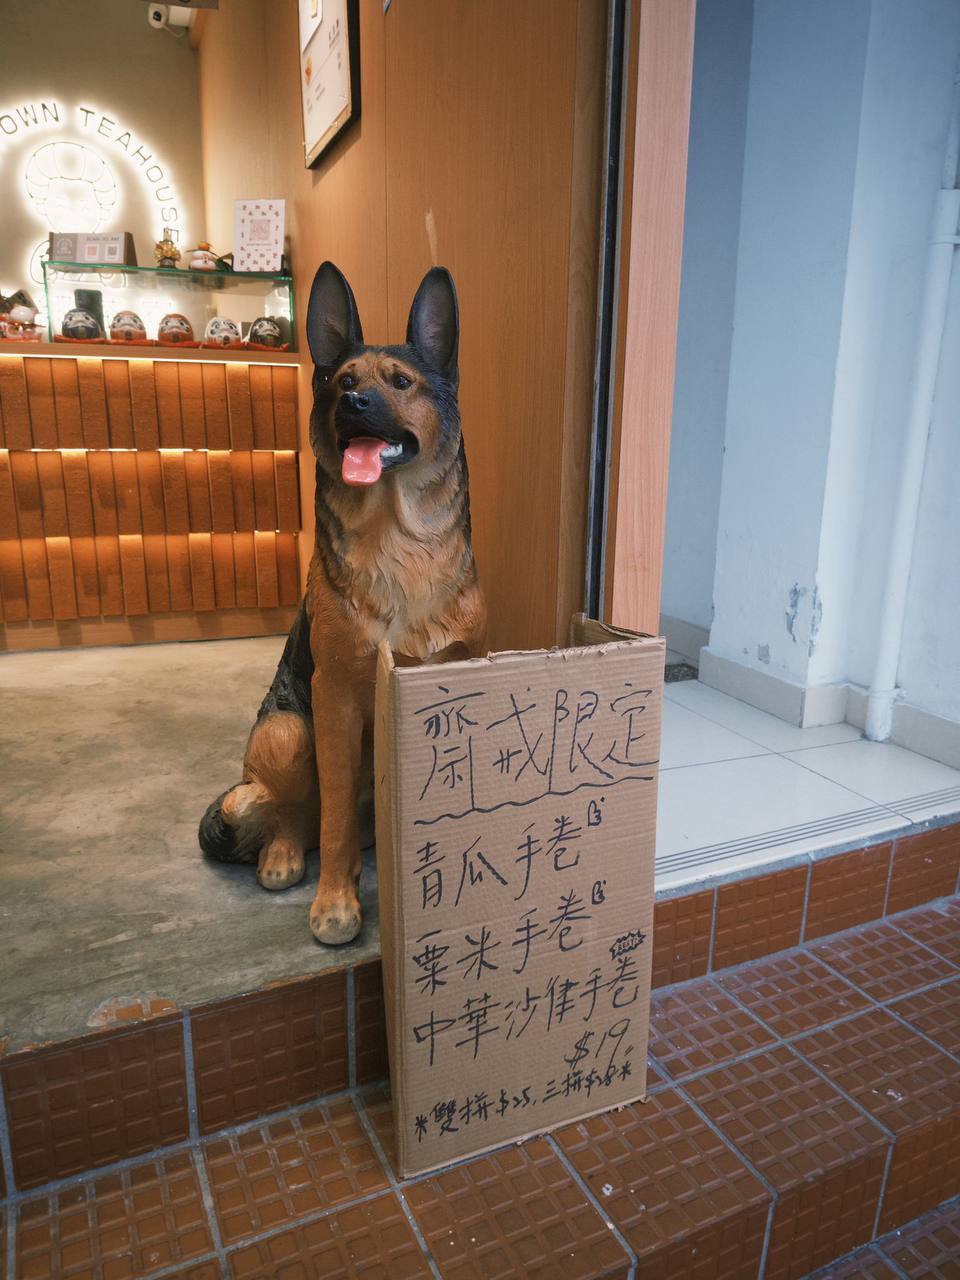 OWN TEAHOUSE
SCAN TO PAY
齋戒限定
青瓜手卷
粟米手卷
BEST!
中華沙律手卷
$19
*雙拼$25,三拼$28*